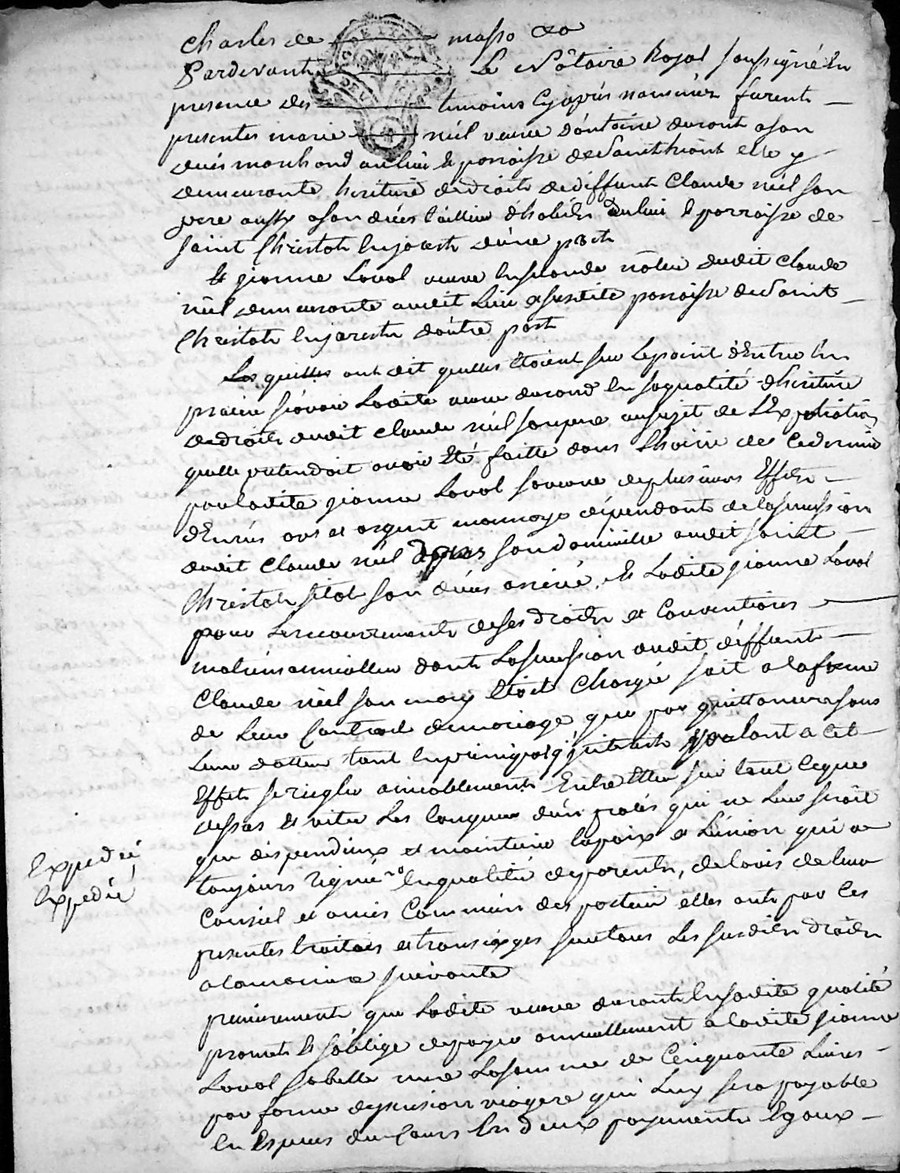 Charles de masso &a
Pardevant Le Notaire Royal soussigné En
presence des temoins cy après nommés furent
presentes marie néel veuve d'antoine durant a son
decés marchand au lieu & parroisse de Saint elle y
demeurante heritiere de droits de deffunt Claude néel son
pere aussy a son décés du lieu & parroisse de
saint Christoh En jarest d'une part
Et jeanne Laval veuve En seconde nôces dudit Claude
néel demeurante audit Lieu & susdite parroisse de Saint
Christoh En jarest d'autre part
Les quelles ont dit quelles étoient sur Le point d'Entrer En
procés sçavoir Ladite veuve durand En sa qualité d'heritiere
de droits dudit Claude néel son pere au sujet de L'Expoliation
quelle pretendoit avoir été faitte dans L'hoirie de Ce dernier
par ladite jeanne Laval sa veuve de plusieurs Effets
denrées ors et argent monnoyé dépendants de la succession
dudit Claude néel dans son domicille audit saint
Christoh sitot son décés arrivé, Et Ladite jeanne Laval
pour Le recouvrement de ses droits et Conventions
matrimonialles dont La succession dudit déffunt
Claude néel son mary étoit Chargée soit a la forme
de Leur Contrat de mariage que par quittances sans
Leur datte tant En principal qu'interests voulant a Cet
Effet se regler aimablement Entre Elles sur tout Ce que
dessus Et eviter Les longueurs d'un procés qui ne Leur seroit
que dispendieux et maintenir la paix & L'union qui a
toujours regné En qualité de parents, de l'avis de leur
Conseil et amis Communs des parties elles ont par Ces
presentes traittés et transigés sur tous Les susdits droits
a la maniere suivante
premierement que Ladite veuve durant En sadite qualité
promet & s'oblige de payer annuellement a ladite jeanne
Laval sa belle mere La somme de Cinquante Livres
par forme de pension viagere qui Luy sera payable
En Especes du Cours En deux payements Egaux
Expedié
Expedié